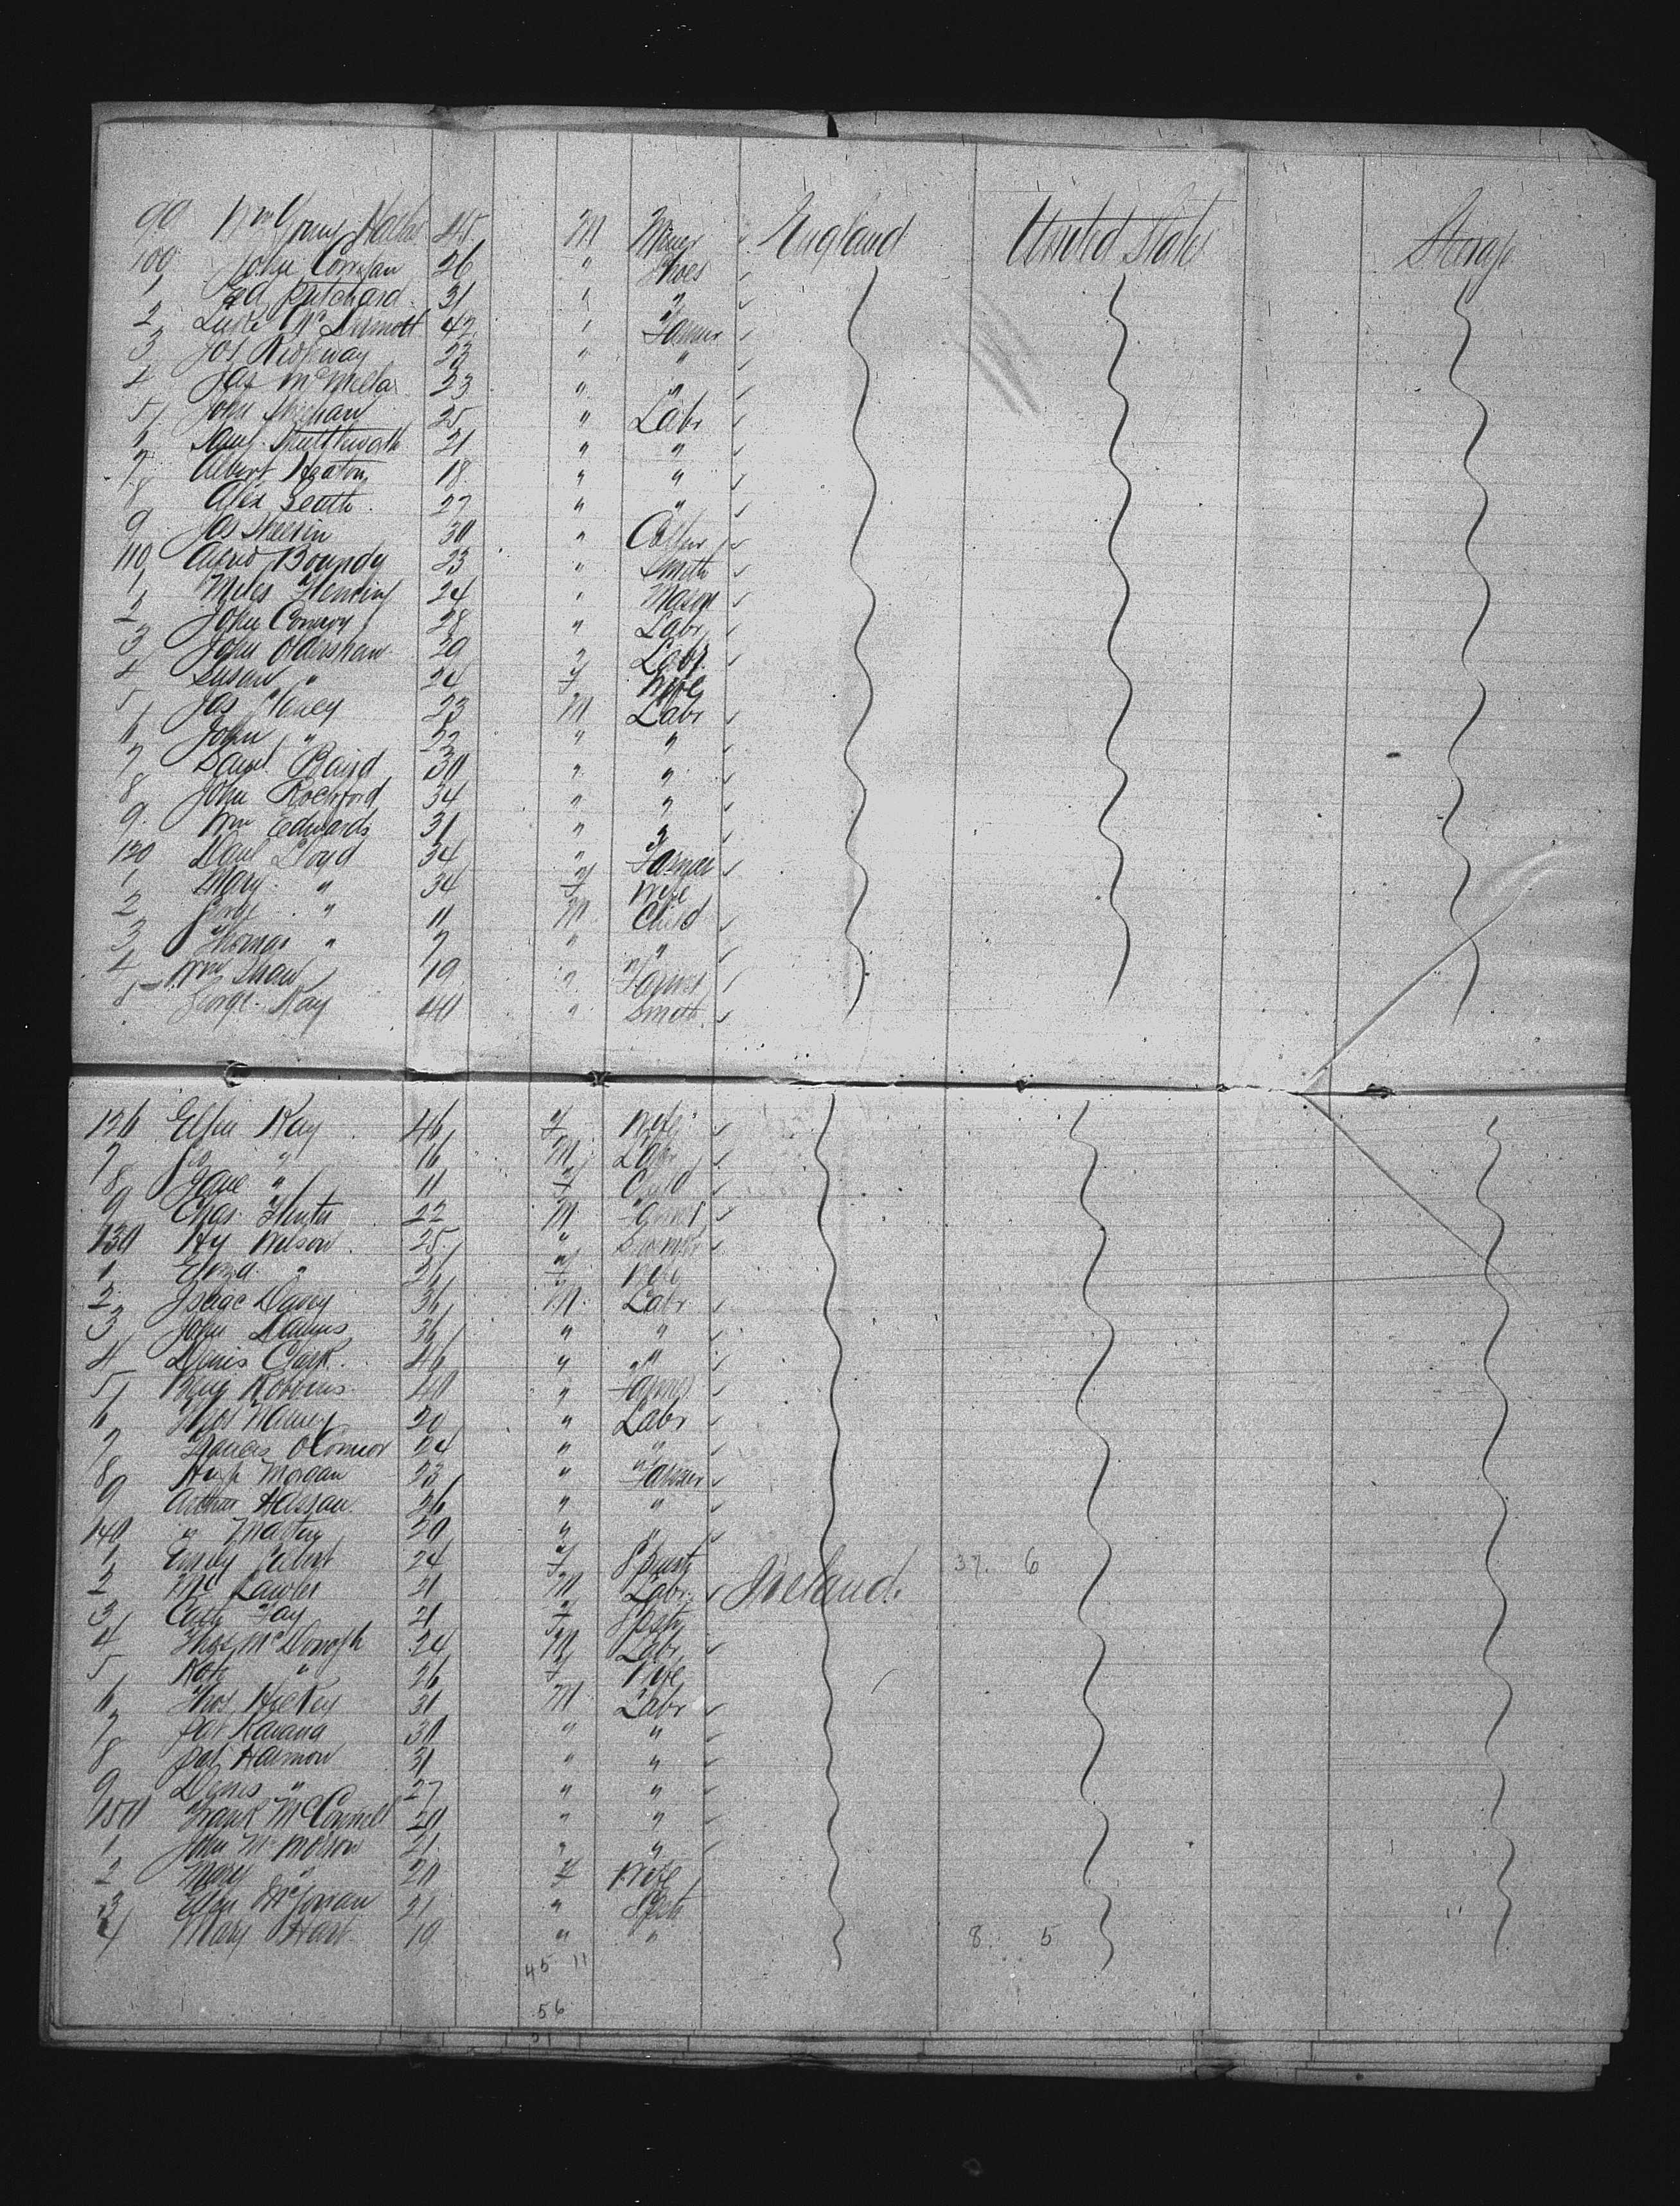 99 Wm 45 M Miner England United States Steerage
100 John Corrigan 26 " Shoes
1 Ed Pritchard 31 " "
2 Luke McDermott 42 " Farmer
3 Jos Ridgway 23 " "
4 Jas McMellar 23 " "
5 John Sheehan 25 " Labr
6 Saml Shuttleworth 21 " "
7 Albert Heaton 18 " "
8 Alex Beath 27 " "
9 Jas Sheerin 30 " Collier
110 Alfred Boundy 23 " Smith
1 Miles Fleming 24 " Mason
2 John Conway 28 " Labr
3 John Oldershaw 29 " Labr
4 Susan " 24 F Wife
5 Jas Haney 23 M Labr
6 John " 22 " "
7 Saml Baird 30 " "
8 John Rochford 34 " "
9 Wm Edwards 31 " "
120 Danl Lloyd 34 " Farmer
1 Mary " 34 F Wife
2 George " 11 M Child
3 Thomas " 7 " "
4 Wm Shaw 19 " Farmer
5 George Kay 40 " Smith
126 Ellen Kay 46 F Wife
7 " 16 M Labr
8 Jane " 11 F Child
9 Chas Hunter 22 M Farmer
130 Hy Wilson 25 "
1 " 26 F Wife
2 Isaac Davey 36 M Labr
3 John Davies 36 " "
4 Denis Clark 46 " "
5 Benj Robbins 40 " Farmer
6 Thos 20 " Labr
7 Francis O'Connor 24 " "
8 Hugh Morgan 23 " Farmer
9 Arthur Hassan 26 " "
140 " Martin 20 " "
1 Emily 24 F Spinstr 37. 6
2 Lawler 21 M Labr Ireland
3 Fay 21 F Spstr
4 Thos McDonogh 24 M Labr
5 Kate " 26 F Wife
6 Thos Hickey 31 M Labr
7 Pat Kavana 30 " "
8 Pat Harmon 31 " "
9 Denis " 27 " "
150 Frank McConnell 20 " "
1 John McMorrow 21 " "
2 Mary " 20 F Wife
3 Ellen McGowan 21 " Spstr
4 Mary Hart 19 " " 8. 5
45 11
56